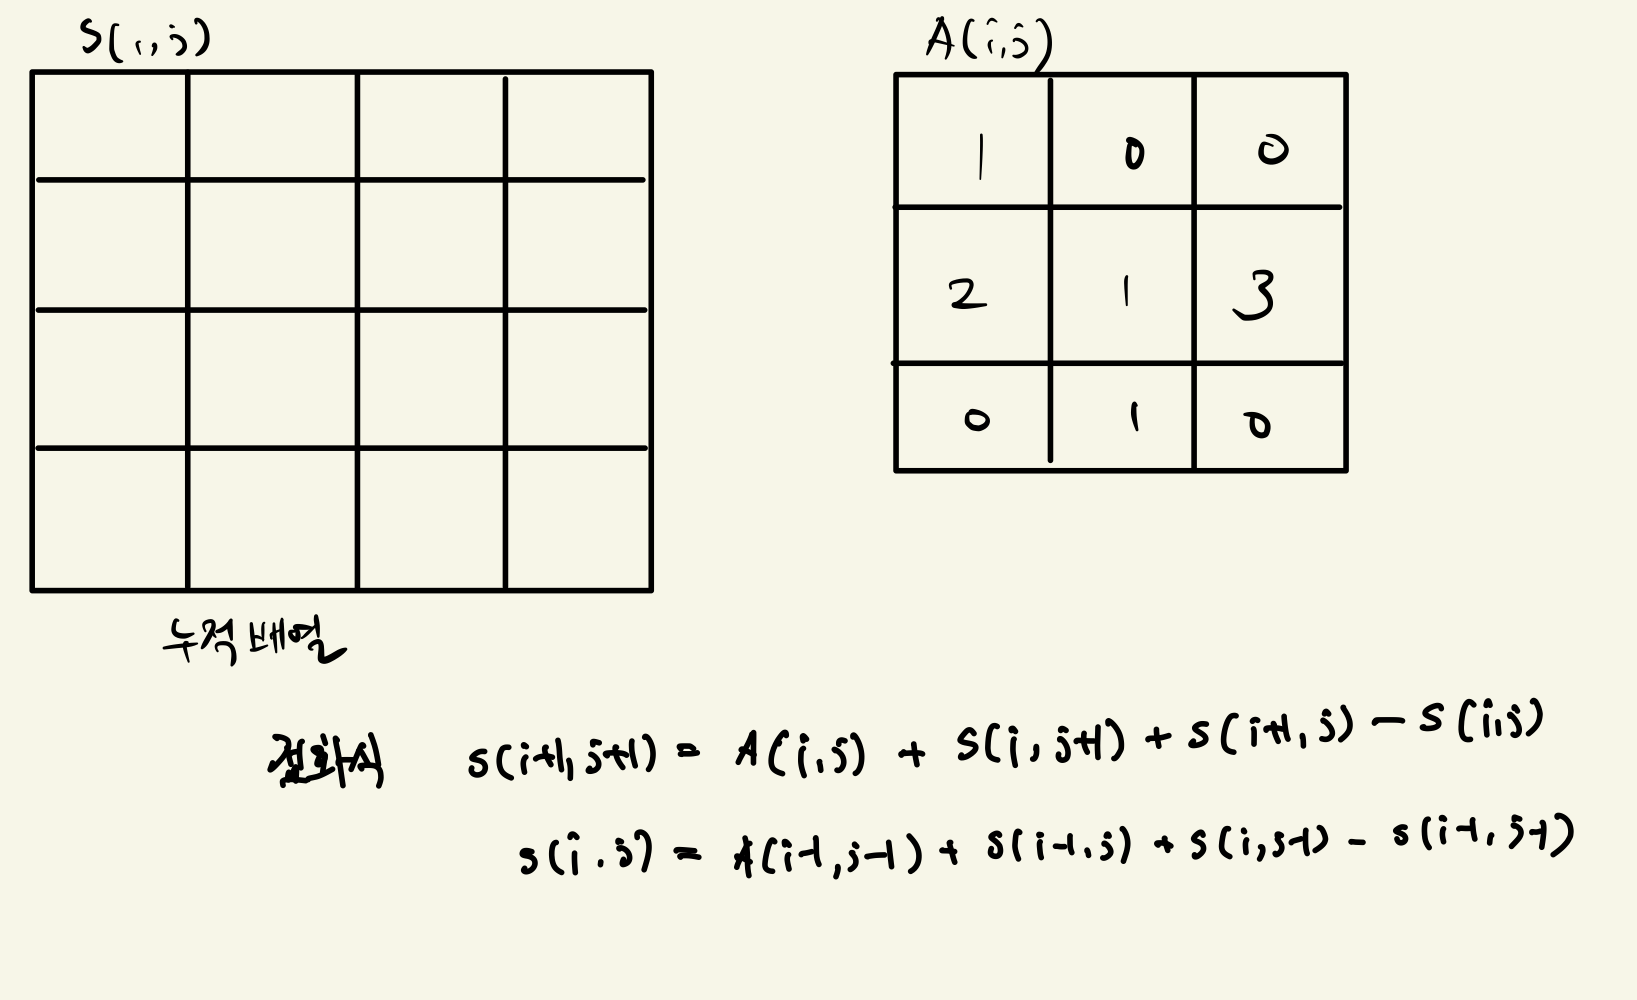 S(i,j)
A(i,j)
1 0 0
2 1 3
0 1 0
누적 배열
S(i+1,j+1) = A(i,j) + S(i,j+1) + S(i+1,j) - S(i,j)
S(i,j) = A(i-1,j-1) + S(i-1,j) + S(i,j-1) - S(i-1,j-1)